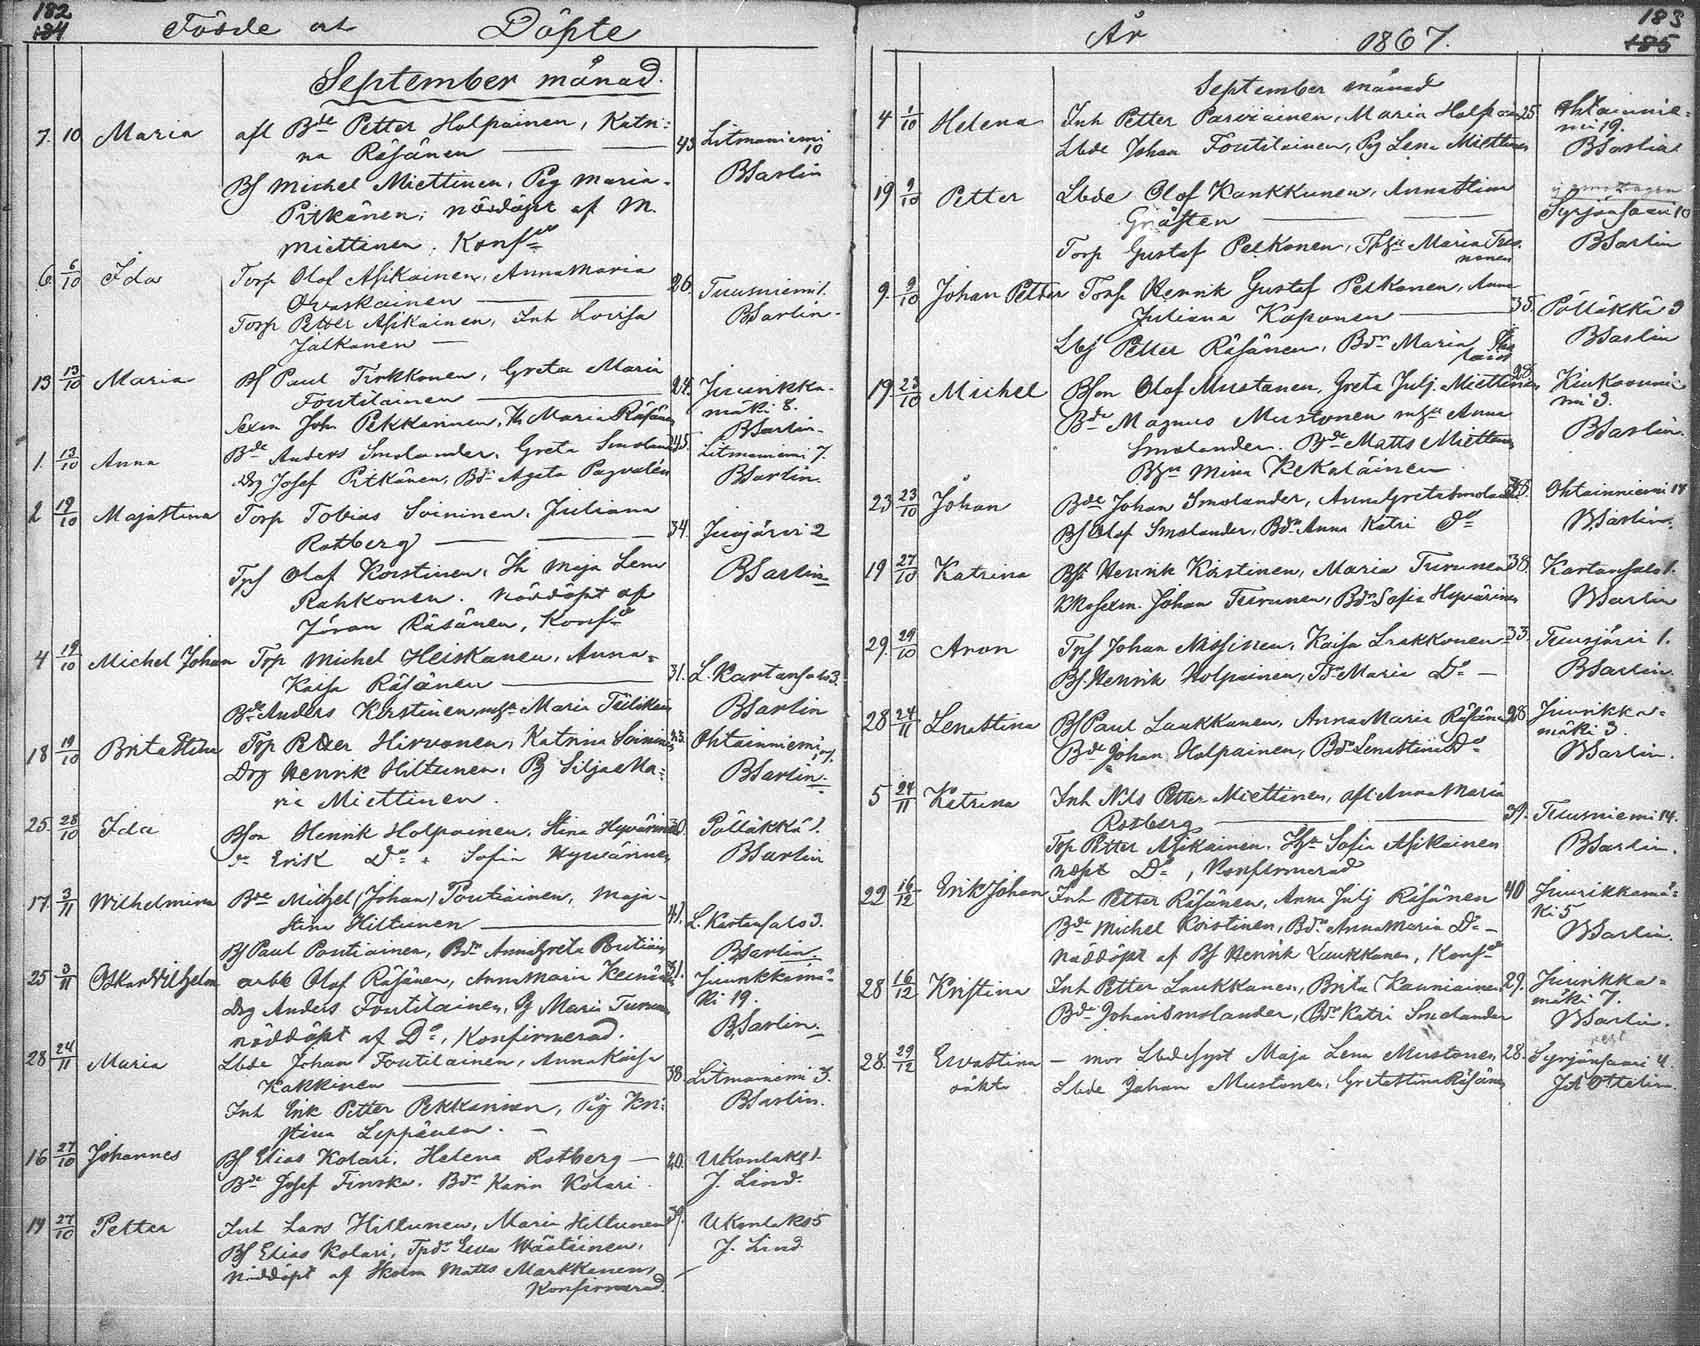 182
184
Födde och Döpte
September månad.
7. 10 Maria afl Bde Petter Holpainen, Katri-
na Räsänen 43 Litmaniemi 10
Bf Michel Miettinen, Pig Maria
Pitkänen, nöddöpt af M. BSarlin
Miettinen. Konf
6. 6/10 Ida Torp Olof Asikainen, Anna Maria
Ovaskainen 26. Tuusniemi 1.
Torp Petter Asikainen, Inh Lovisa BSarlin
Jalkanen
13 13/10 Maria Bf Paul Tirkkonen, Greta Maria
Toutilainen 24. Juurikka-
mäki 8.
Joh Pekkarinen, Maria Räsänen BSarlin
1. 13/10 Anna Bde Anders Smolander, Greta Smolander 45. Litmaniemi 7.
Drg Josef Pitkänen, Bdr Agata BSarlin
2 19/10 Maja Stina Torp Tobias Soininen, Juliana
Rotberg 34. Juojärvi 2
Tpf Olof Korstinen, Maja Lena BSarlin
Rahkonen. Nöddöpt af
Jöran Räsänen, Konf
4 19/10 Michel Johan Torp Michel Heiskanen, Anna
Kaisa Räsänen 31. L. Kartansalo 3.
Bde Anders Korstinen, Maria Tiilikain BSarlin
18 19/10 Brita Stina Torp Petter Hirvonen, Katrina Soininen Ohtainniemi 17.
Drg Henrik Hiltunen, Pg Silja Ma-
ria Miettinen. BSarlin
25. 28/10 Ida Bfon Henrik Holpainen, Stina Hyvärinen Pölläkkä 1.
Erik Do Sofia Hyvärinen BSarlin
17. 3/11 Wilhelmina Bde Michel (Johan) Poutiainen, Maja
Stina Hiltunen 41. L. Kartansalo 3.
Bf Paul Poutiainen, Bdr Anna Greta BSarlin
25 3/11 Oskar Vilhelm arbk Olof Räsänen, Anna Maria 31. Juurikkamä-
ki 19.
Drg Anders Toutilainen, Pg Maria Turunen
nöddöpt af Do, Konfirmerad. BSarlin
28 24/11 Maria Lbde Johan Toutilainen, Anna Kaisa
Kakkinen 38. Litmaniemi 3.
Inh Erik Petter Pekkarinen, Pig Kri- BSarlin.
stina Leppänen.
16 27/10 Johannes Bf Elias Kotari, Helena Rotberg 20. UKontaks 1
Bde Josef Finska, Bdr Karin Kotari J. Lind.
19 27/10 Petter Inh Lars Hiltunen, Maria Hiltunen 39. UKontaks 5
Bf Elias Kotari, Ewa Wäätäinen, J. Lind
nöddöpt af Matts Markkanen,
Konfirmerad.
År 1867. 183
185
September månad
4 1/10 Helena Inh Petter Parviainen, Maria Holpain 25. Ohtainnie-
mi 19.
Lbde Johan Toutilainen, Pig Lena Miettinen BSarlin
19 9/10 Petter Lbde Olof Kankkunen, Anna Stina
Gråsten Syrjänsaari 10
Torp Gustaf Pelkonen, Maria BSarlin
9. 9/10 Johan Petter Torp Henrik Gustaf Pelkonen, Anna
Juliana Koponen 35. Pölläkkä 9
Lbf Petter Räsänen, Bdr Maria BSarlin
19. 23/10 Michel Bfon Olof Mustonen, Greta Julj. Miettinen 28. Kiukoonnie-
mi 3.
Bde Magnus Mustonen Anna
Smolander. Bde Matts Miettinen BSarlin.
Mina Kekäläinen
23 23/10 Johan Bde Johan Smolander, Anna Greta Smolander Ohtainniemi 14
Bf Olof Smolander, Bdr Anna Katri Do BSarlin.
19 27/10 Katrina Henrik Korstinen, Maria Turunen 38. Kartansalo 1.
Johan Turunen, Bdr Sofia Hyvärinen BSarlin
29. 29/10 Aron Tpf Johan Nissinen, Kaisa Laakkonen 33. Tuusjärvi 1.
Bf Henrik Holpainen, Maria Do BSarlin.
28 24/11 Lena Stina Bf Paul Laukkanen, Anna Maria Räsänen 28 Juurikka-
mäki 3.
Bde Johan Holpainen, Bdr Lena Stina Do BSarlin.
5 24/11 Katrina Inh Nils Petter Miettinen, afl Anna Maria
Rotberg 39. Tuusniemi 14.
Torp Petter Asikainen. Sofia Asikainen BSarlin.
nöpt Do, Konfirmerad
22 16/12 Erik Johan Inh Petter Räsänen, Anna Julj Räsänen 40 Juurikkamä-
ki 5
Bde Michel Korstinen, Bdr Anna Maria Do BSarlin.
nöddöpt af Bf Henrik Laukkanen, Konf
28 16/12 Kristina Inh Petter Laukkanen, Brita Kauniainen 29. Juurikka-
mäki 7.
Bde Johan Smolander, Bdr Katri Smolander BSarlin.
28. 29/12 Ewa Stina — mor Maja Lena Mustonen 28. Syrjänsaari 4.
oäkta Lbde Johan Mustonen, Greta Stina Räsänen Ottelin.